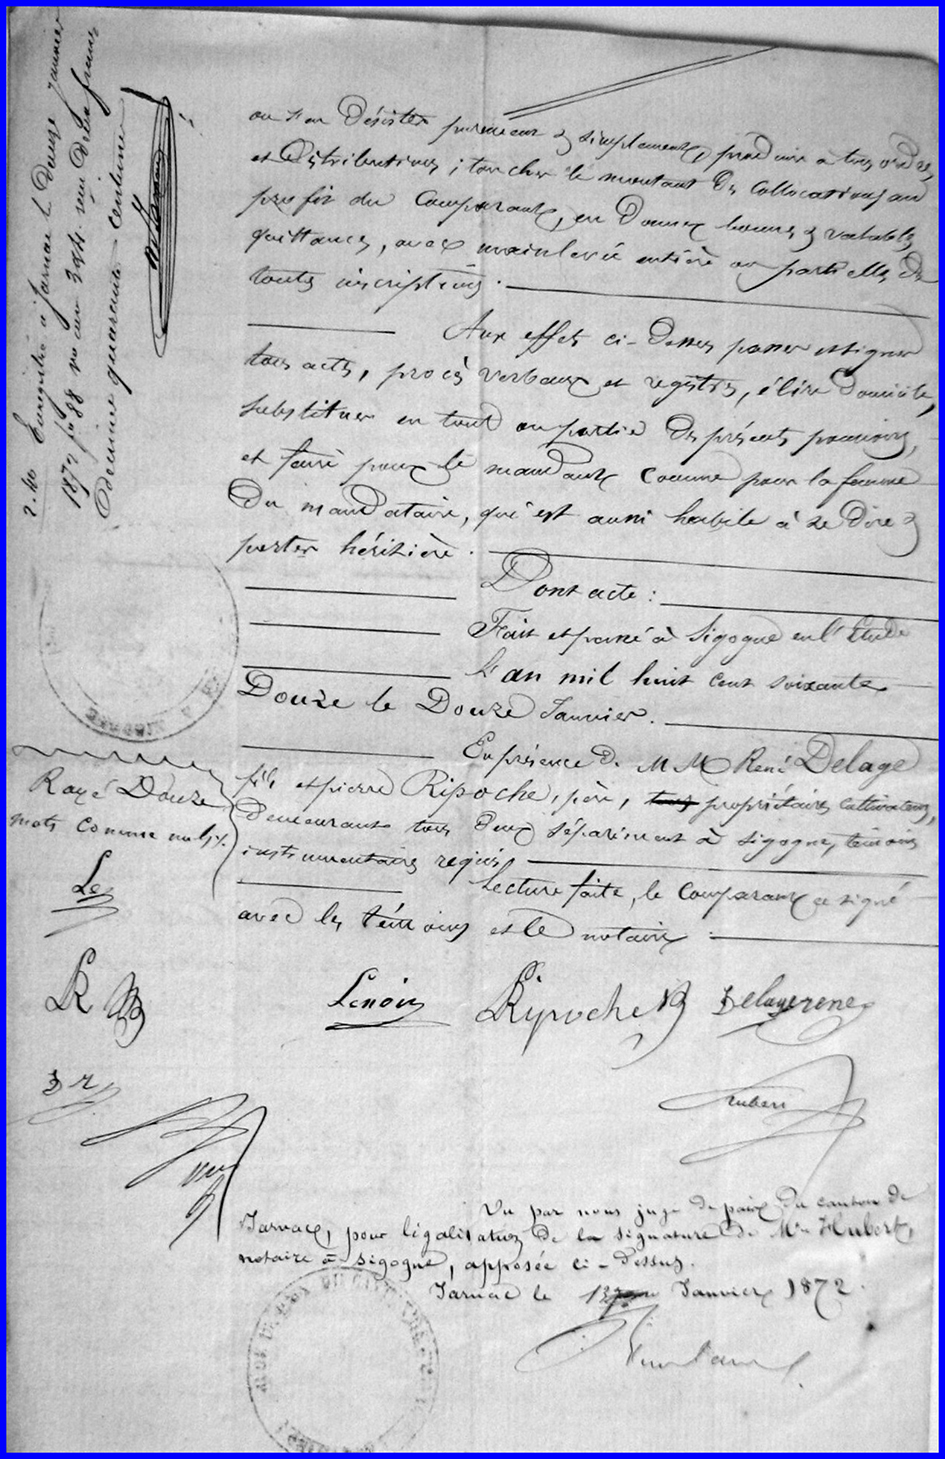 ou s'en désister purement & simplement, produire à tous ordres
et distributions ; toucher le montant des collocations au
profit du comparant, en donner bonnes & valables
quittances, avec mainlevée entière ou partielle de
toutes inscriptions.
Aux effets ci-dessus passer et signer
tous actes, procès verbaux et registres, élire domicile,
substituer en tout ou partie des présents pouvoirs,
et faire pour le mandant comme pour la femme
du mandataire, qui est aussi habile à se dire &
porter héritière.
Dont acte :
Fait et passé à Sigogne en l'étude
L'an mil huit cent soixante
Douze le Douze Janvier.
En présence de MM René Delage
fils et pierre Ripoche, père, propriétaires cultivateurs,
demeurant tous deux séparément à Sigogne, témoins
instrumentaires requis
Lecture faite, le comparant a signé
avec les témoins et le notaire.
Lenoir Ripoche Delagerené
Hubert
Enregistré à Jarnac le douze Janvier
1872 fo 88 reçu deux francs
Décime quarante centimes
2.40
Rayé Douze
mots comme nuls.
Le
LR
D r
Vu par nous juge de paix du canton de
Jarnac, pour légalisation de la signature de Me Hubert,
notaire à Sigogne, apposée ci-dessus.
Jarnac le Janvier 1872.